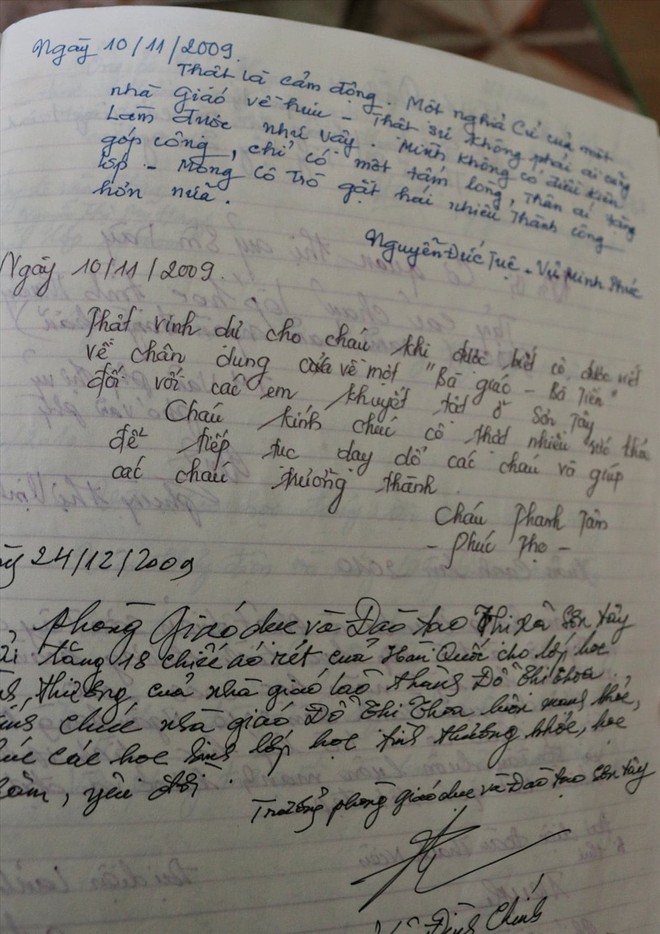 Ngày 10/11/2009.
Thật là cảm động. Một nghĩa cử của một
nhà giáo về hưu - Thật sự không phải ai cũng
làm được như vậy. Mình không có điều kiện
góp công, chỉ có một tấm lòng, thân ái tặng
lớp - Mong cô trò gặt hái nhiều thành công
hơn nữa.
Nguyễn Đức Tuệ - Vũ Minh Phúc
Ngày 10/11/2009.
Thật vinh dự cho cháu khi được biết cô, được viết
về chân dung của về một "Bà giáo - Bà Tiên"
đối với các em khuyết tật ở Sơn Tây
Cháu kính chúc cô thật nhiều sức khỏe
để tiếp tục dạy dỗ các cháu và giúp
các cháu trưởng thành.
Cháu Thanh Tâm
- Phúc Thọ -
24/12/2009
Phòng Giáo dục và Đào tạo Thị xã Sơn Tây
tặng 18 chiếc áo rét của Hàn Quốc cho lớp học
thương của nhà giáo lão thành Đỗ Thị Thoa.
chúc nhà giáo Đỗ Thị Thoa luôn mạnh khỏe,
các học sinh lớp học tình thương khỏe, học
yêu đời.
Trưởng phòng giáo dục và Đào tạo Sơn Tây
Đình Chính